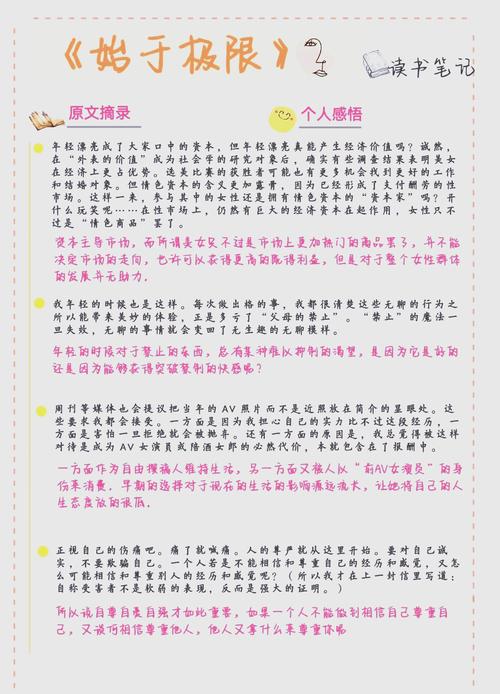 《始于极限》
读书笔记
原文摘录
个人感悟
年轻漂亮成了大家口中的资本，但年轻漂亮真能产生经济价值吗？诚然，
在“外表的价值”成为社会学的研究对象后，确实有些调查结果表明美女
在经济上更占优势。选美比赛的获胜者可能也有更多机会找到更好的工作
和结婚对象。但情色资本的含义更加露骨，因为已经形成了支付酬劳的性
市场。这样一来，参与其中的女性还是拥有情色资本的“资本家”吗？开
什么玩笑呢……在性市场上，仍然有巨大的经济资本在起作用，女性只不
过是“情色商品”罢了。
资本主导市场，而所谓美女只不过是市场上更加热门的商品罢了，并不能
决定市场的走向，也许可以获得更高的既得利益，但是对于整个女性群体
的发展并无助力.
我年轻的时候也是这样。每次做出格的事，我都很清楚这些无聊的行为之
所以能带来美妙的体验，正是多亏了“父母的禁止”。“禁止”的魔法一
旦失效，无聊的事情就会变回了无生趣的无聊模样。
年轻的时候对于禁止的东西，总有某种难以抑制的渴望，是因为它是好的
还是因为能够获得突破禁制的快感呢？
周刊等媒体也会提议把当年的AV照片而不是近照放在简介的显眼处。这
些要求我都会接受。一方面是因为我担心自己的实力比不过这段经历，一
方面是害怕一旦拒绝就会被抛弃。还有一方面的原因是，我总觉得被这样
对待是成为AV女演员或陪酒女郎的必然代价，本就包含在了报酬中。
一方面作为自由撰稿人维持生活，另一方面又被人以“前AV女演员”的身
份来消费. 早期的选择对于现在的生活的影响源远流长，让她将自己的人
生态度放的很低.
正视自己的伤痛吧。痛了就喊痛。人的尊严就从这里开始。要对自己诚
实，不要欺骗自己。一个人若是不能相信和尊重自己的经历和感觉，又怎
么可能相信和尊重别人的经历和感觉呢？（所以我才在上一封信里写道：
自称受害者不是软弱的表现，反而是强大的证明。）
所以说自尊自爱自强才如此重要，如果一个人不能做到相信自己尊重自
己，又谈何相信尊重他人，他人又拿什么来尊重你呢